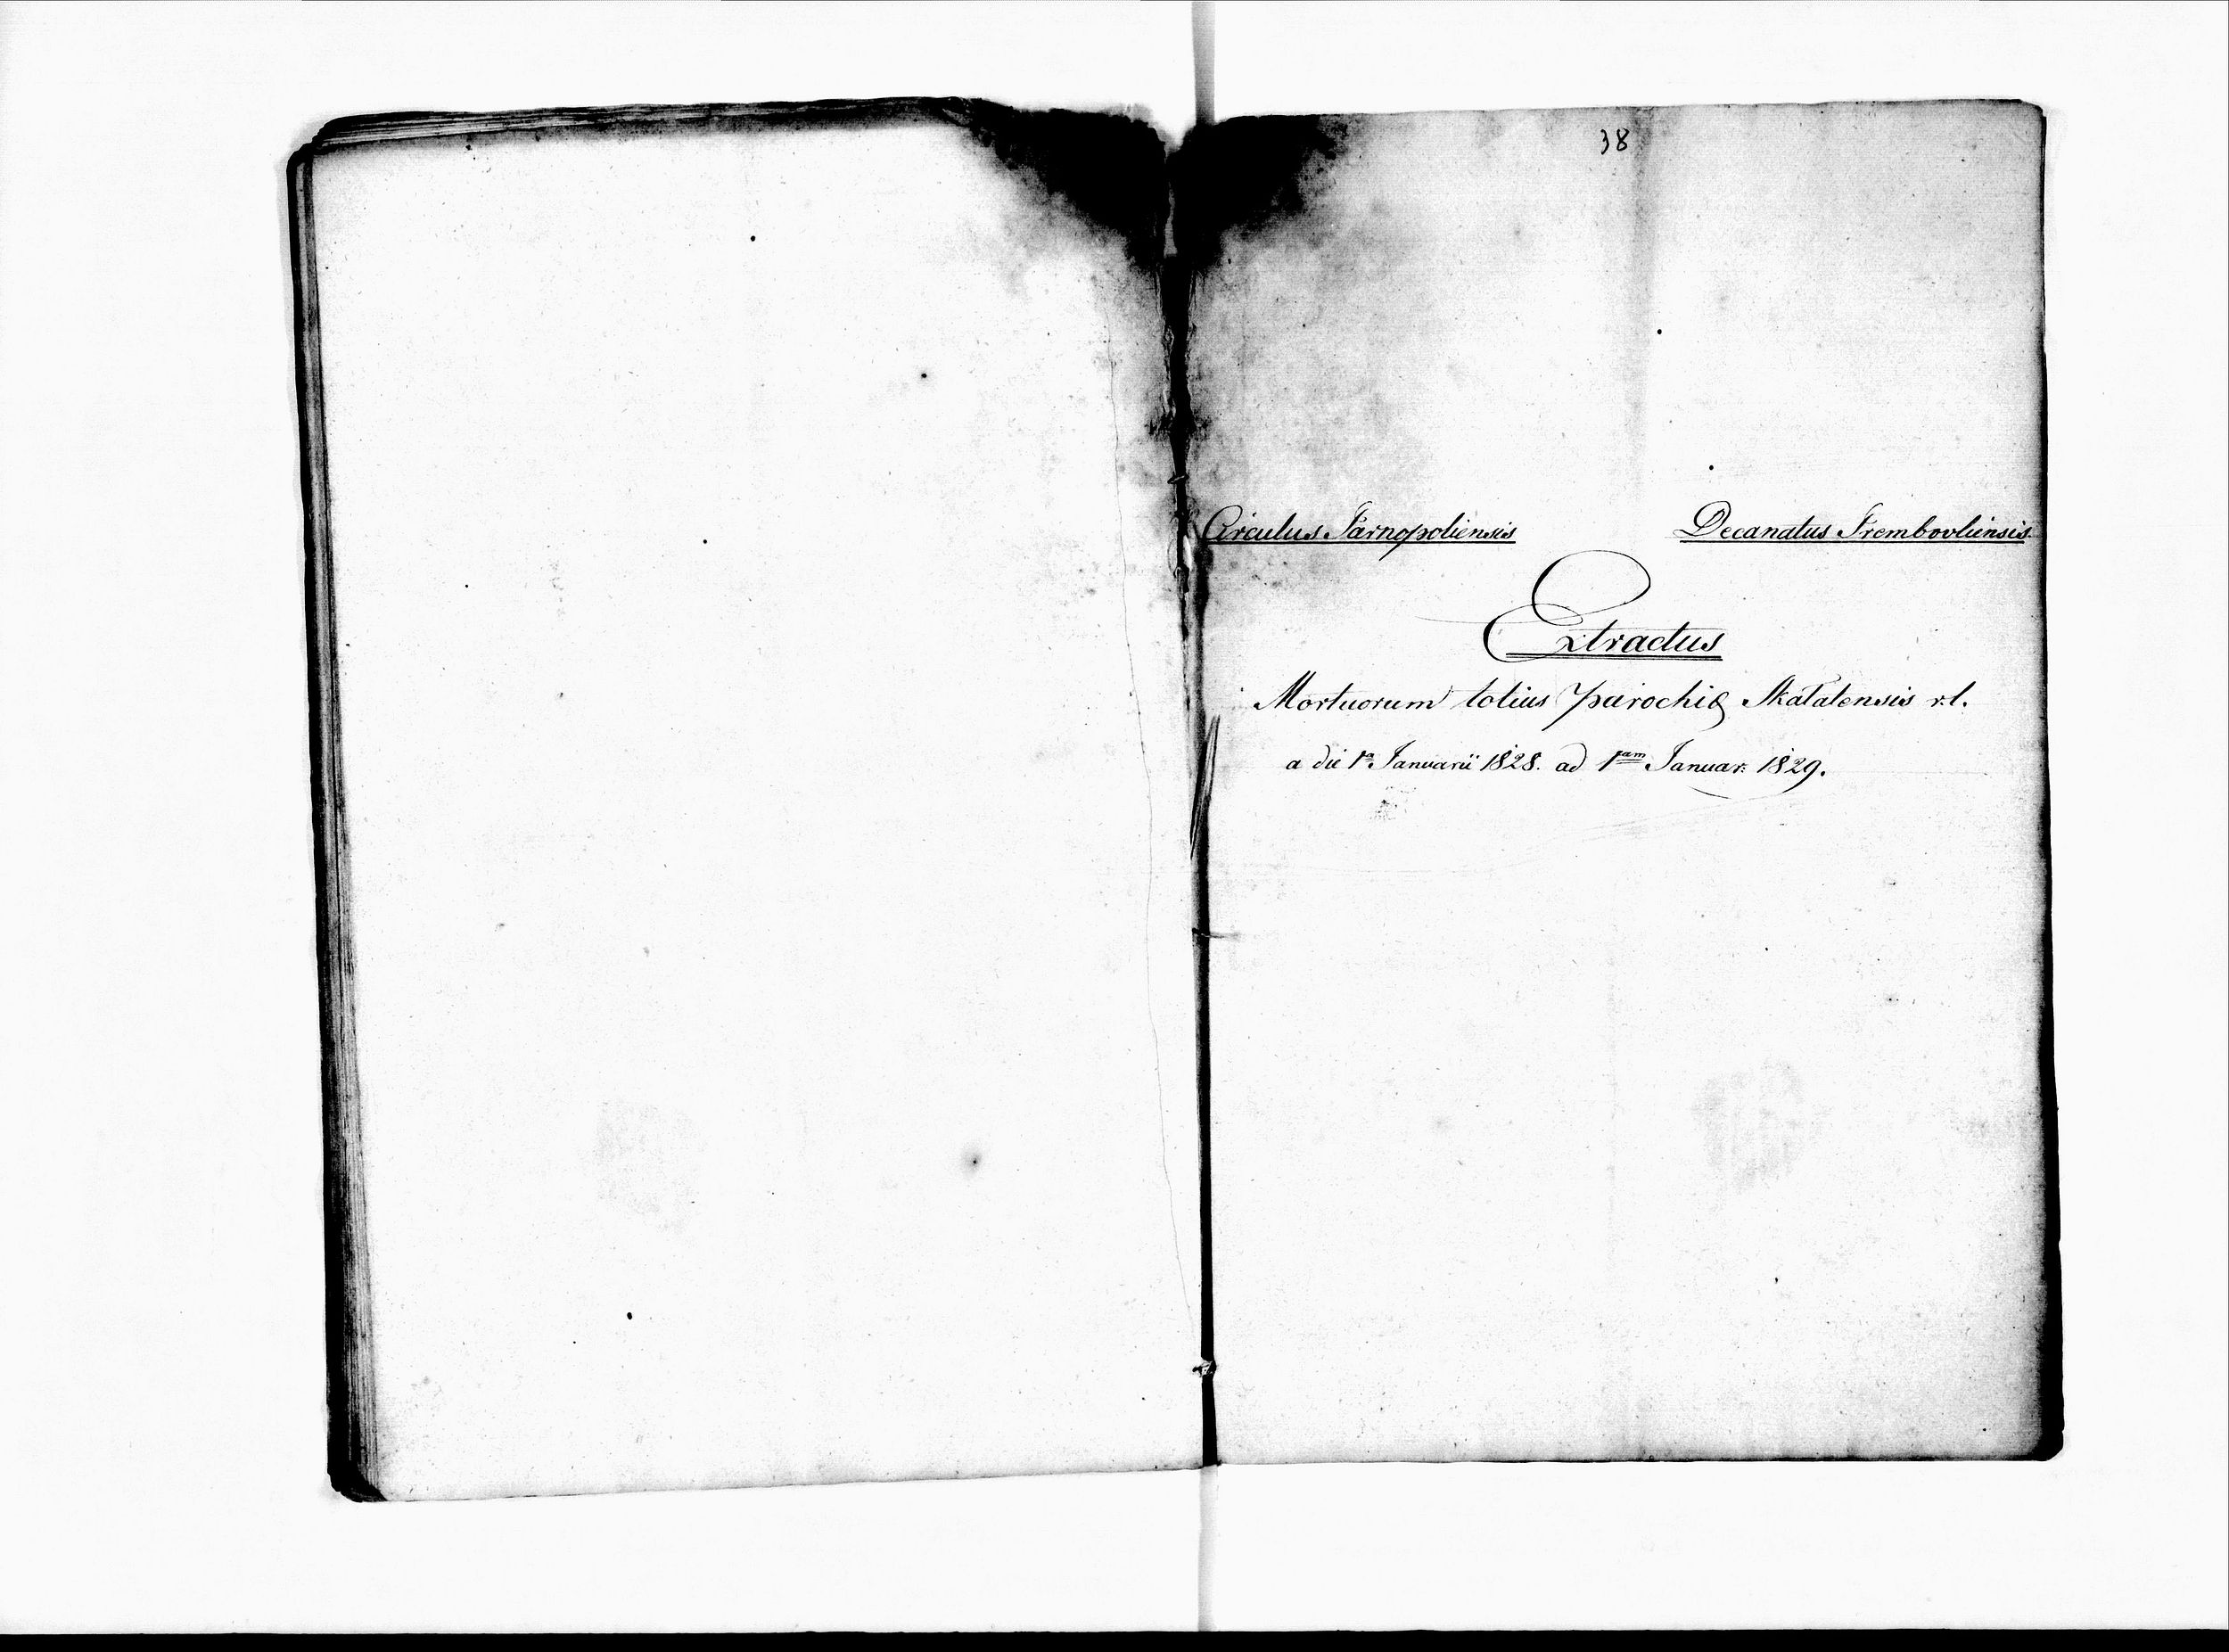 38
Circulus Tarnopoliensis Decanatus Trembovliensis.
Extractus
Mortuorum totius parochiæ Skałatensis r.l.
a die 1a Januarii 1828. ad 1am Januar: 1829.